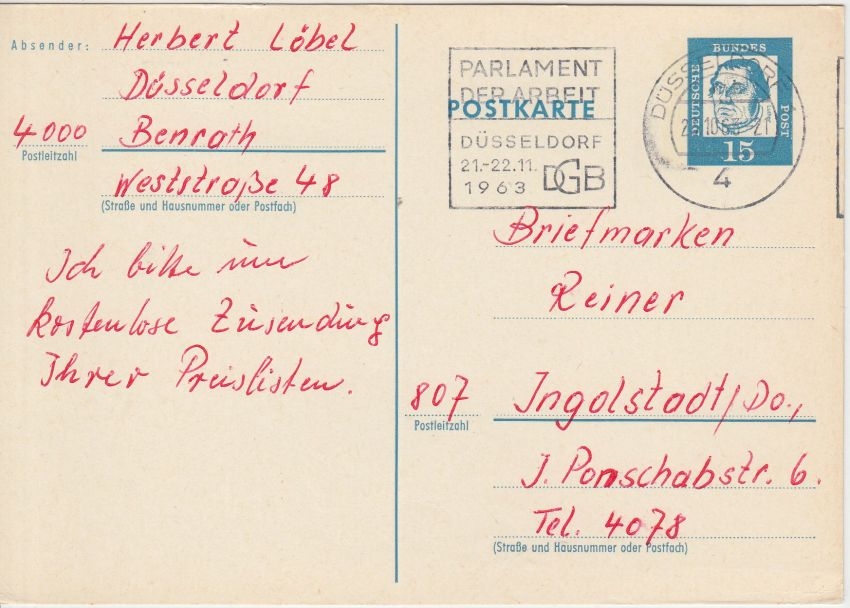 Absender: Herbert Löbel
Düsseldorf
4000 Benrath
Postleitzahl
Weststraße 48
(Straße und Hausnummer oder Postfach)
Ich bitte um
kostenlose Zusendung
Ihrer Preislisten.
PARLAMENT
DER ARBEIT
POSTKARTE
DÜSSELDORF
21.-22.11.
1963 DGB
DÜSSELDORF
4
DEUTSCHE BUNDES POST
15
Briefmarken
Reiner
807 Ingolstadt/Do.,
Postleitzahl
J. Ponschabstr. 6.
Tel. 4078
(Straße und Hausnummer oder Postfach)